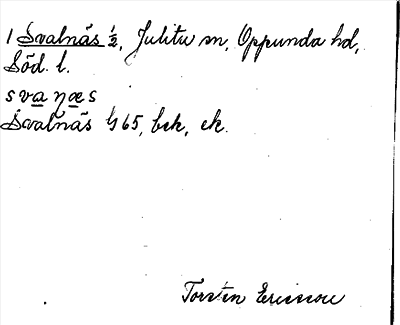 1 Svalnäs ½, Julita sn, Oppunda hd,
Söd. l.
svaŋæs
Svalnäs G 65, bek, ek.
Torsten Ericsson